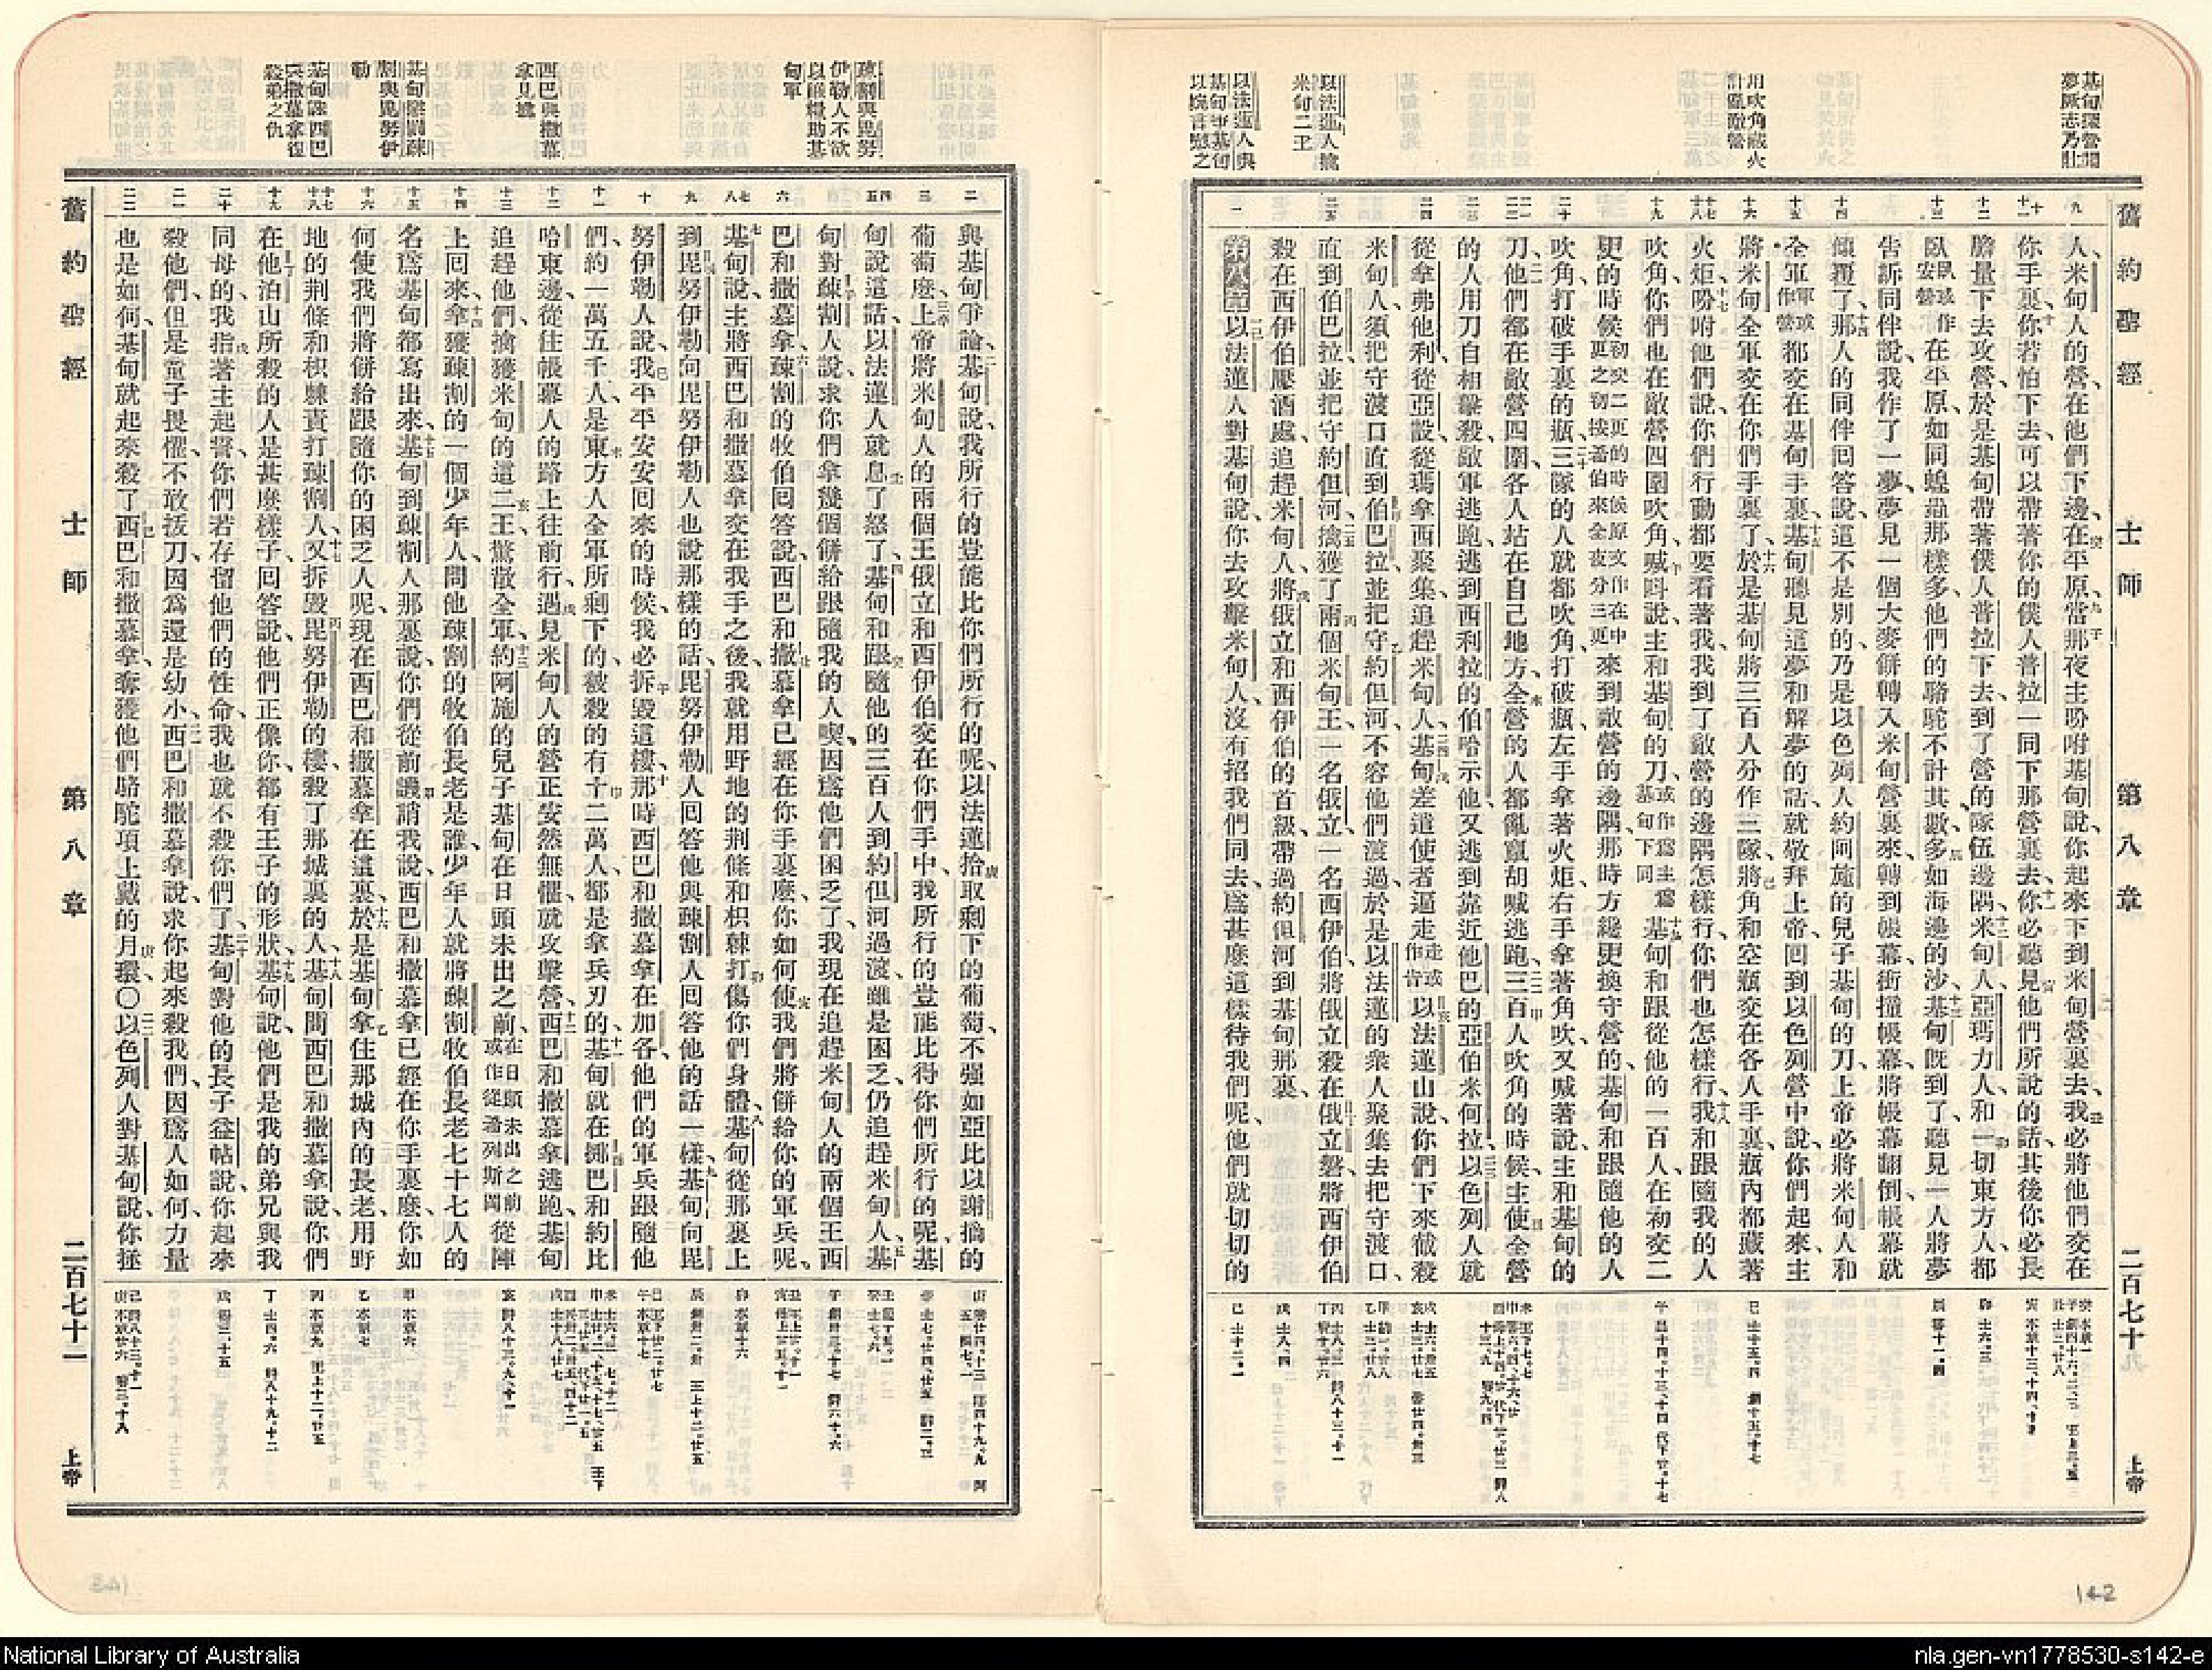 舊約聖經 士師 第八章 二百七十 上帝
基甸探營聞
夢厥志乃壯
用吹角藏火
計僞敵營
以法蓮人擒
米甸二王
以法蓮人與
基甸爭基甸
以婉言慰之
九
十
十一
十二
十三
十四
十五
十六
十七
十八
十九
二十
二一
二二
二三
二四
二五
一
人、米甸人的營、在他們下邊、在平原、當那夜主吩咐基甸說、你起來下到米甸營裏去、我必將他們交在
你手裏、你若怕下去、可以帶著你的僕人普拉一同下那營裏去、你必聽見他們所說的話、其後你必長
膽量下去攻營、於是基甸帶著僕人普拉下去、到了營的隊伍邊隅、米甸人、亞瑪力人、和一切東方人、都
臥臥或作安營在平原、如同蝗蟲那樣多、他們的駱駝不計其數、多如海邊的沙、基甸旣到了、聽見一人將夢
告訴同伴說、我作了一夢、夢見一個大麥餅轉入米甸營裏來、轉到帳幕、衝撞帳幕、將帳幕翻倒、帳幕就
傾覆了、那人的同伴回答說、這不是別的、乃是以色列人約阿施的兒子基甸的刀、上帝必將米甸人和
全軍軍或作營都交在基甸手裏、基甸聽見這夢和解夢的話、就敬拜上帝、回到以色列營中說、你們起來、主
將米甸全軍交在你們手裏了、於是基甸將三百人分作三隊、將角和空瓶交在各人手裏、瓶內都藏著
火炬、吩咐他們說、你們行動都要看著我、我到了敵營的邊隅、怎樣行、你們也怎樣行、我和跟隨我的人
吹角、你們也在敵營四圍吹角、喊叫說、主和基甸的刀、或作爲主爲基甸下同基甸和跟從他的一百人、在初交二
更的時候初交二更的時候原文作在中更之初按希伯來全夜分三更來到敵營的邊隅、那時方纔更換守營的、基甸和跟隨他的人
吹角、打破手裏的瓶、三隊的人就都吹角、打破瓶、左手拿著火炬、右手拿著角吹、又喊著說、主和基甸的
刀、他們都在敵營四圍、各人站在自己地方、全營的人都亂竄胡喊逃跑、三百人吹角的時候、主使全營
的人用刀自相擊殺、敵軍逃跑、逃到西利拉的伯哈示他、又逃到靠近他巴的亞伯米何拉、以色列人就
從拿弗他利、從亞設、從瑪拿西聚集、追趕米甸人、基甸差遣使者遍走走或作告以法蓮山說、你們下來截殺
米甸人、須把守渡口、直到伯巴拉、並把守約但河、不容他們渡過、於是以法蓮的衆人聚集去把守渡口、
直到伯巴拉、並把守約但河、擒獲了兩個米甸王、一名俄立、一名西伊伯、將俄立殺在俄立磐、將西伊伯
殺在西伊伯壓酒處、追趕米甸人、將俄立和西伊伯的首級、帶過約但河到基甸那裏、
第八章以法蓮人對基甸說、你去攻擊米甸人、沒有招我們同去、爲甚麼這樣待我們呢、他們就切切的
142
疏割與毘努
伊勒人不欲
以餱糧助基
甸軍
西巴與撒慕
拿見擄
基甸懲罰疎
割與毘努伊
勒
基甸誅西巴
與撒慕拿復
殺弟之仇
二
三
四
五
六
七
八
九
十
十一
十二
十三
十四
十五
十六
十七
十八
十九
二十
二一
二二
與基甸爭論、基甸說、我所行的豈能比你們所行的呢、以法蓮拾取剩下的葡萄、不强如亞比以謝摘的
葡萄麼、上帝將米甸人的兩個王俄立和西伊伯交在你們手中、我所行的豈能比得你們所行的呢、基
甸說這話、以法蓮人就息了怒了、基甸和跟隨他的三百人到約但河過渡、雖是困乏、仍追趕米甸人、基
甸對疎割人說、求你們拿幾個餅給跟隨我的人喫、因爲他們困乏了、我現在追趕米甸人的兩個王西
巴和撒慕拿、疎割的牧伯回答說、西巴和撒慕拿已經在你手裏麼、你如何使我們將餅給你的軍兵呢、
基甸說、主將西巴和撒慕拿交在我手之後、我就用野地的荆條和枳棘打傷你們身體、基甸從那裏上
到毘努伊勒、向毘努伊勒人也說那樣的話、毘努伊勒人回答他與疎割人回答他的話一樣、基甸向毘
努伊勒人說、我平平安安回來的時候、我必拆毀這樓、那時西巴和撒慕拿在加各、他們的軍兵跟隨他
們、約一萬五千人、是東方人全軍所剩下的、被殺的有十二萬人、都是拿兵刃的、基甸就在挪巴和約比
哈東邊、從住帳幕人的路上往前行、遇見米甸人的營正安然無懼、就攻擊營、西巴和撒慕拿逃跑、基甸
追趕他們、擒獲米甸的這二王、驚散全軍、約阿施的兒子基甸在日頭未出之前、在日頭未出之前或作從希列斯閣從陣
上回來、拿獲疎割的一個少年人、問他疎割的牧伯長老是誰、少年人就將疎割牧伯長老七十七人的
名爲基甸都寫出來、基甸到疎割人那裏說、你們從前譏誚我說、西巴和撒慕拿已經在你手裏麼、你如
何使我們將餅給跟隨你的困乏人呢、現在西巴和撒慕拿在這裏、於是基甸拿住那城內的長老、用野
地的荆條和枳棘責打疎割人、又拆毀毘努伊勒的樓、殺了那城裏的人、基甸問西巴和撒慕拿說、你們
在他泊山所殺的人是甚麼樣子、回答說、他們正像你、都有王子的形狀、基甸說、他們是我的弟兄、與我
同母的、我指著主起誓、你們若存留他們的性命、我也就不殺你們了、基甸對他的長子益帖說、你起來
殺他們、但是童子畏懼、不敢拔刀、因爲還是幼小、西巴和撒慕拿說、求你起來殺我們、因爲人如何力量
也是如何、基甸就起來殺了西巴和撒慕拿、奪獲他們駱駝項上戴的月環、〇以色列人對基甸說、你拯
舊約聖經 士師 第八章 二百七十一 上帝
National Library of Australia
nla.gen-vn1778530-s142-e